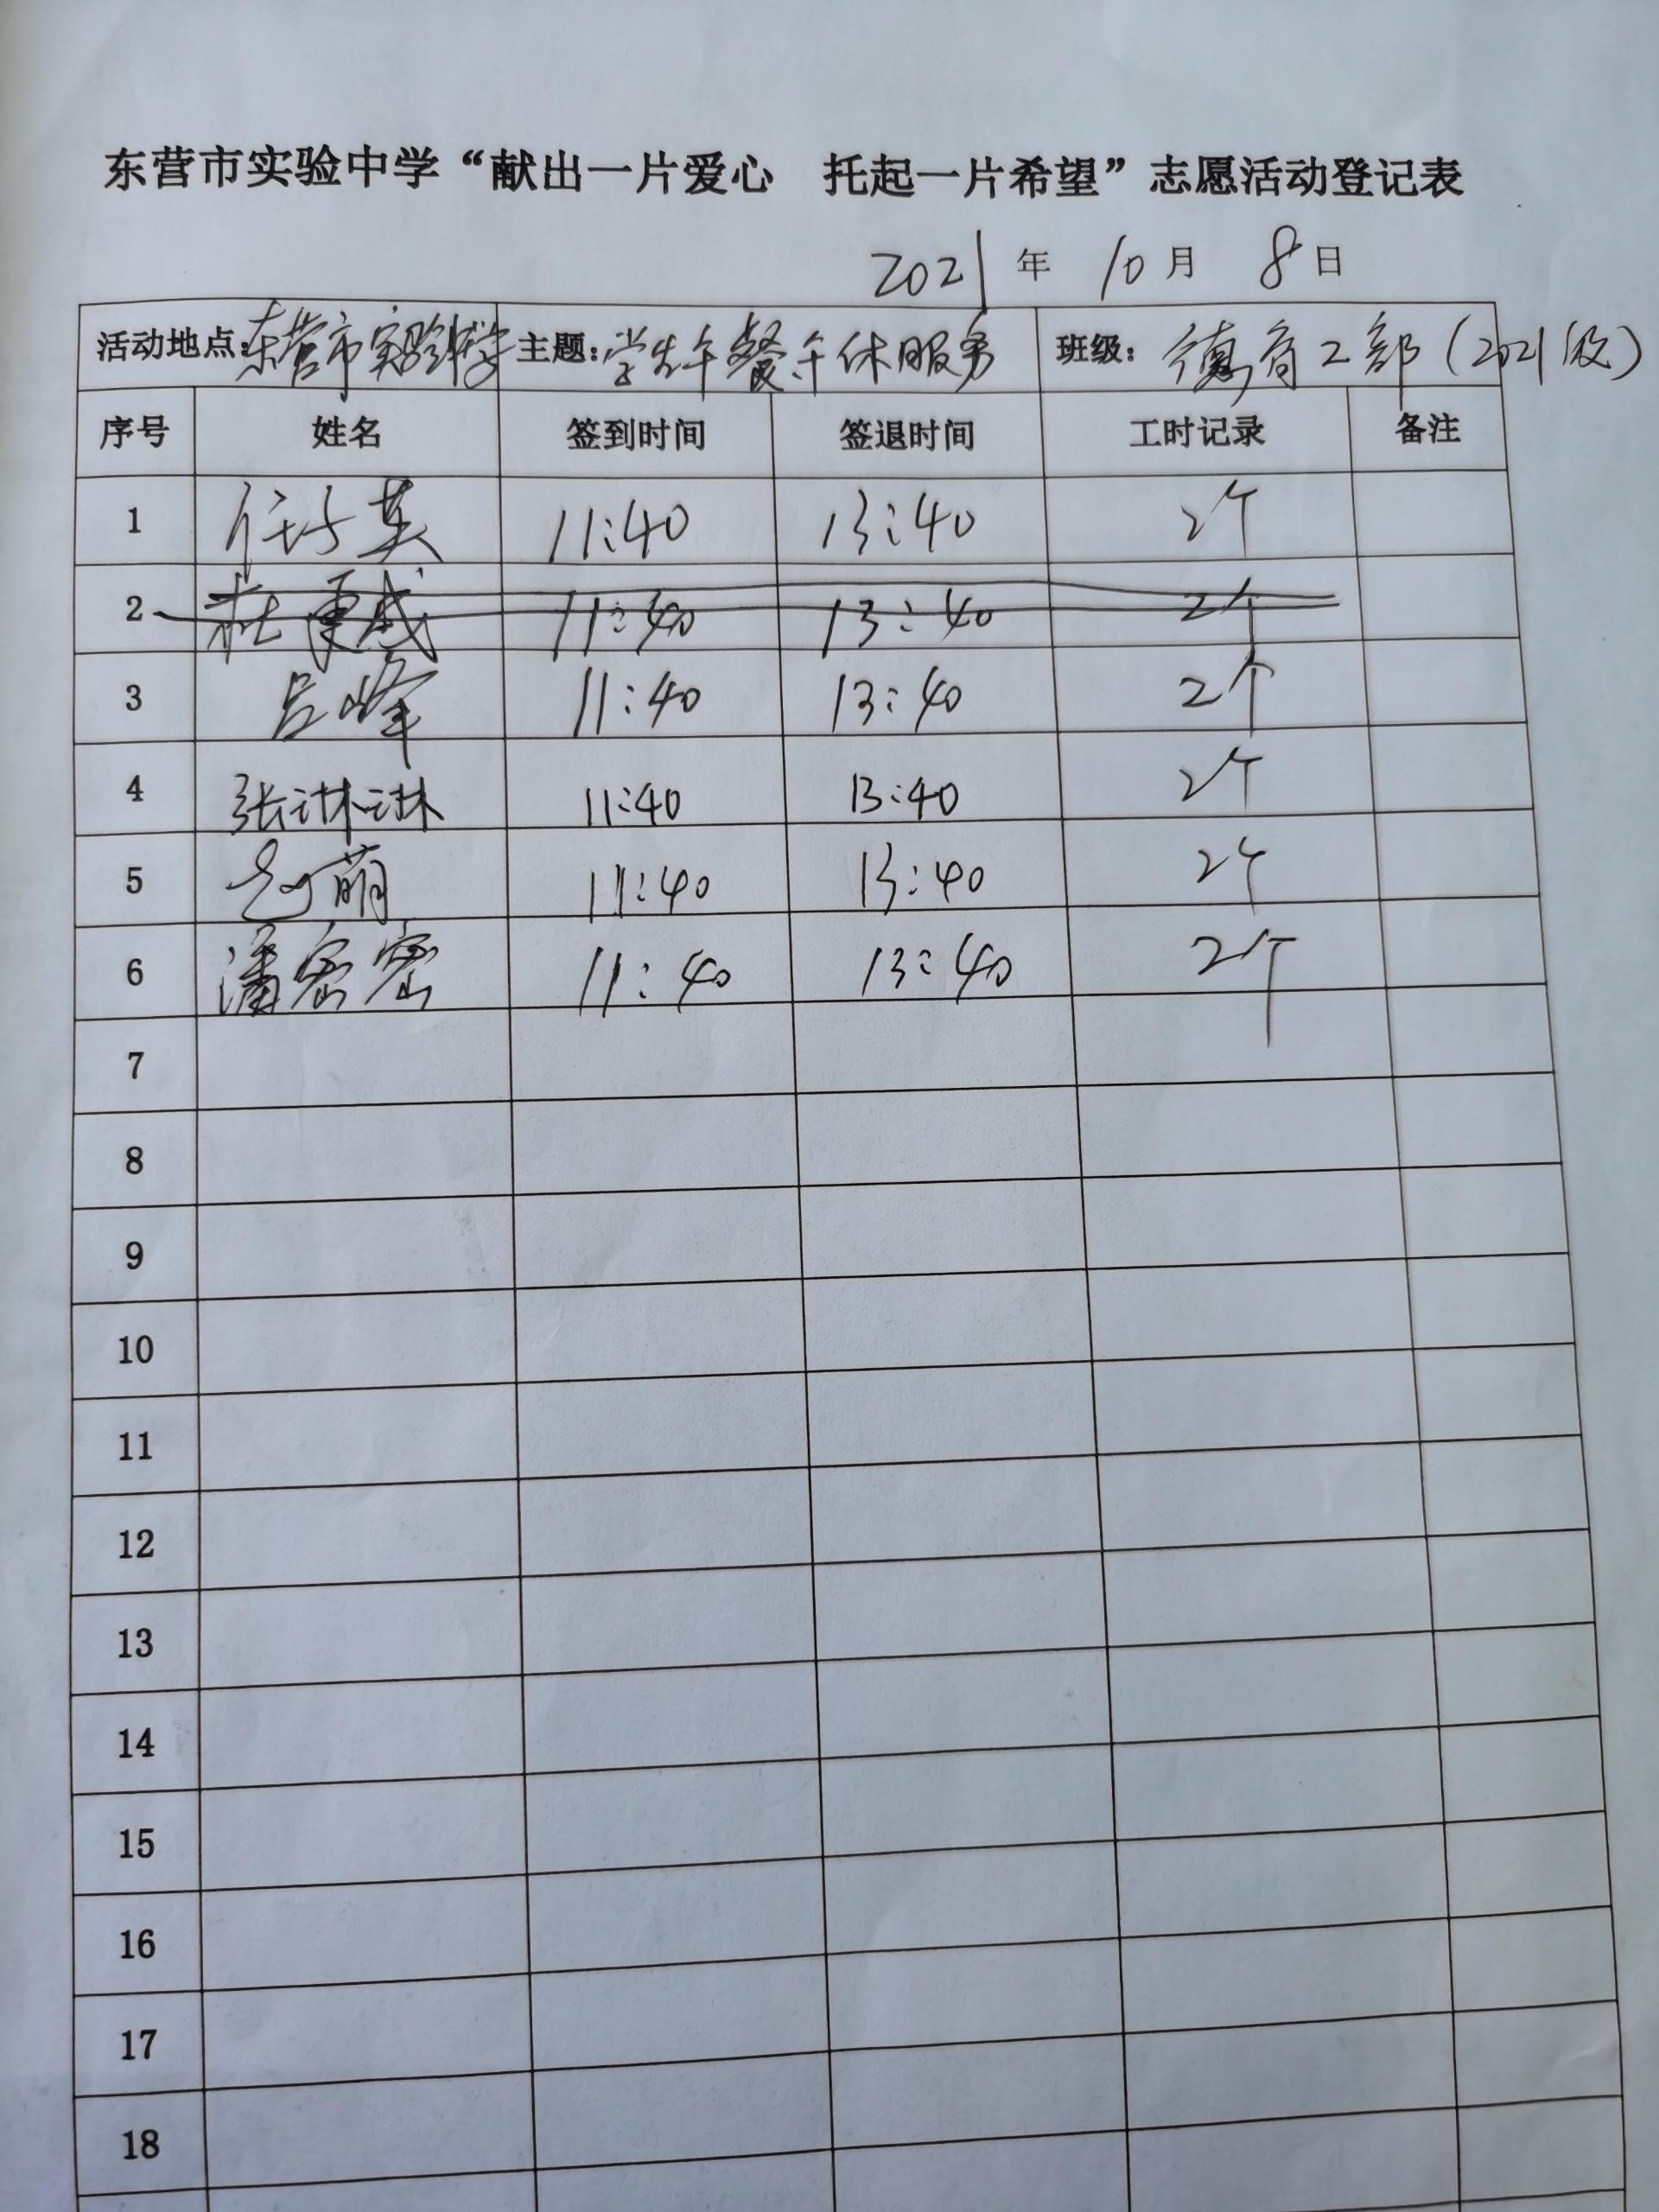 东营市实验中学“献出一片爱心 托起一片希望”志愿活动登记表
2021 年 10 月 8 日
活动地点:东营市实验中学 主题:学生午餐午休服务 班级:德育2部(2021级)
序号 姓名 签到时间 签退时间 工时记录 备注
1 英 11:40 13:40 2个
2 杜 11:40 13:40 2个
3 吕峰 11:40 13:40 2个
4 张琳琳 11:40 13:40 2个
5 萌 11:40 13:40 2个
6 潘密密 11:40 13:40 2个
7
8
9
10
11
12
13
14
15
16
17
18